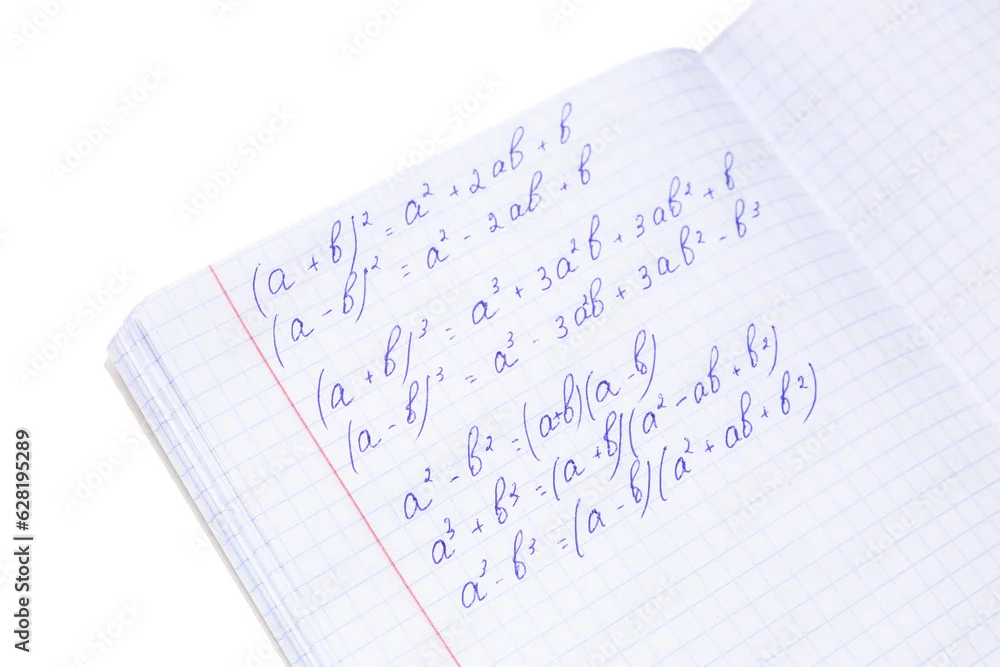 (a + b)² = a² + 2ab + b
(a - b)² = a² - 2ab + b
(a + b)³ = a³ + 3a²b + 3ab² + b
(a - b)³ = a³ - 3a²b + 3ab² - b³
a² - b² = (a+b)(a-b)
a³ + b³ = (a + b)(a² - ab + b²)
a³ - b³ = (a - b)(a² + ab + b²)
Adobe Stock | #628195289